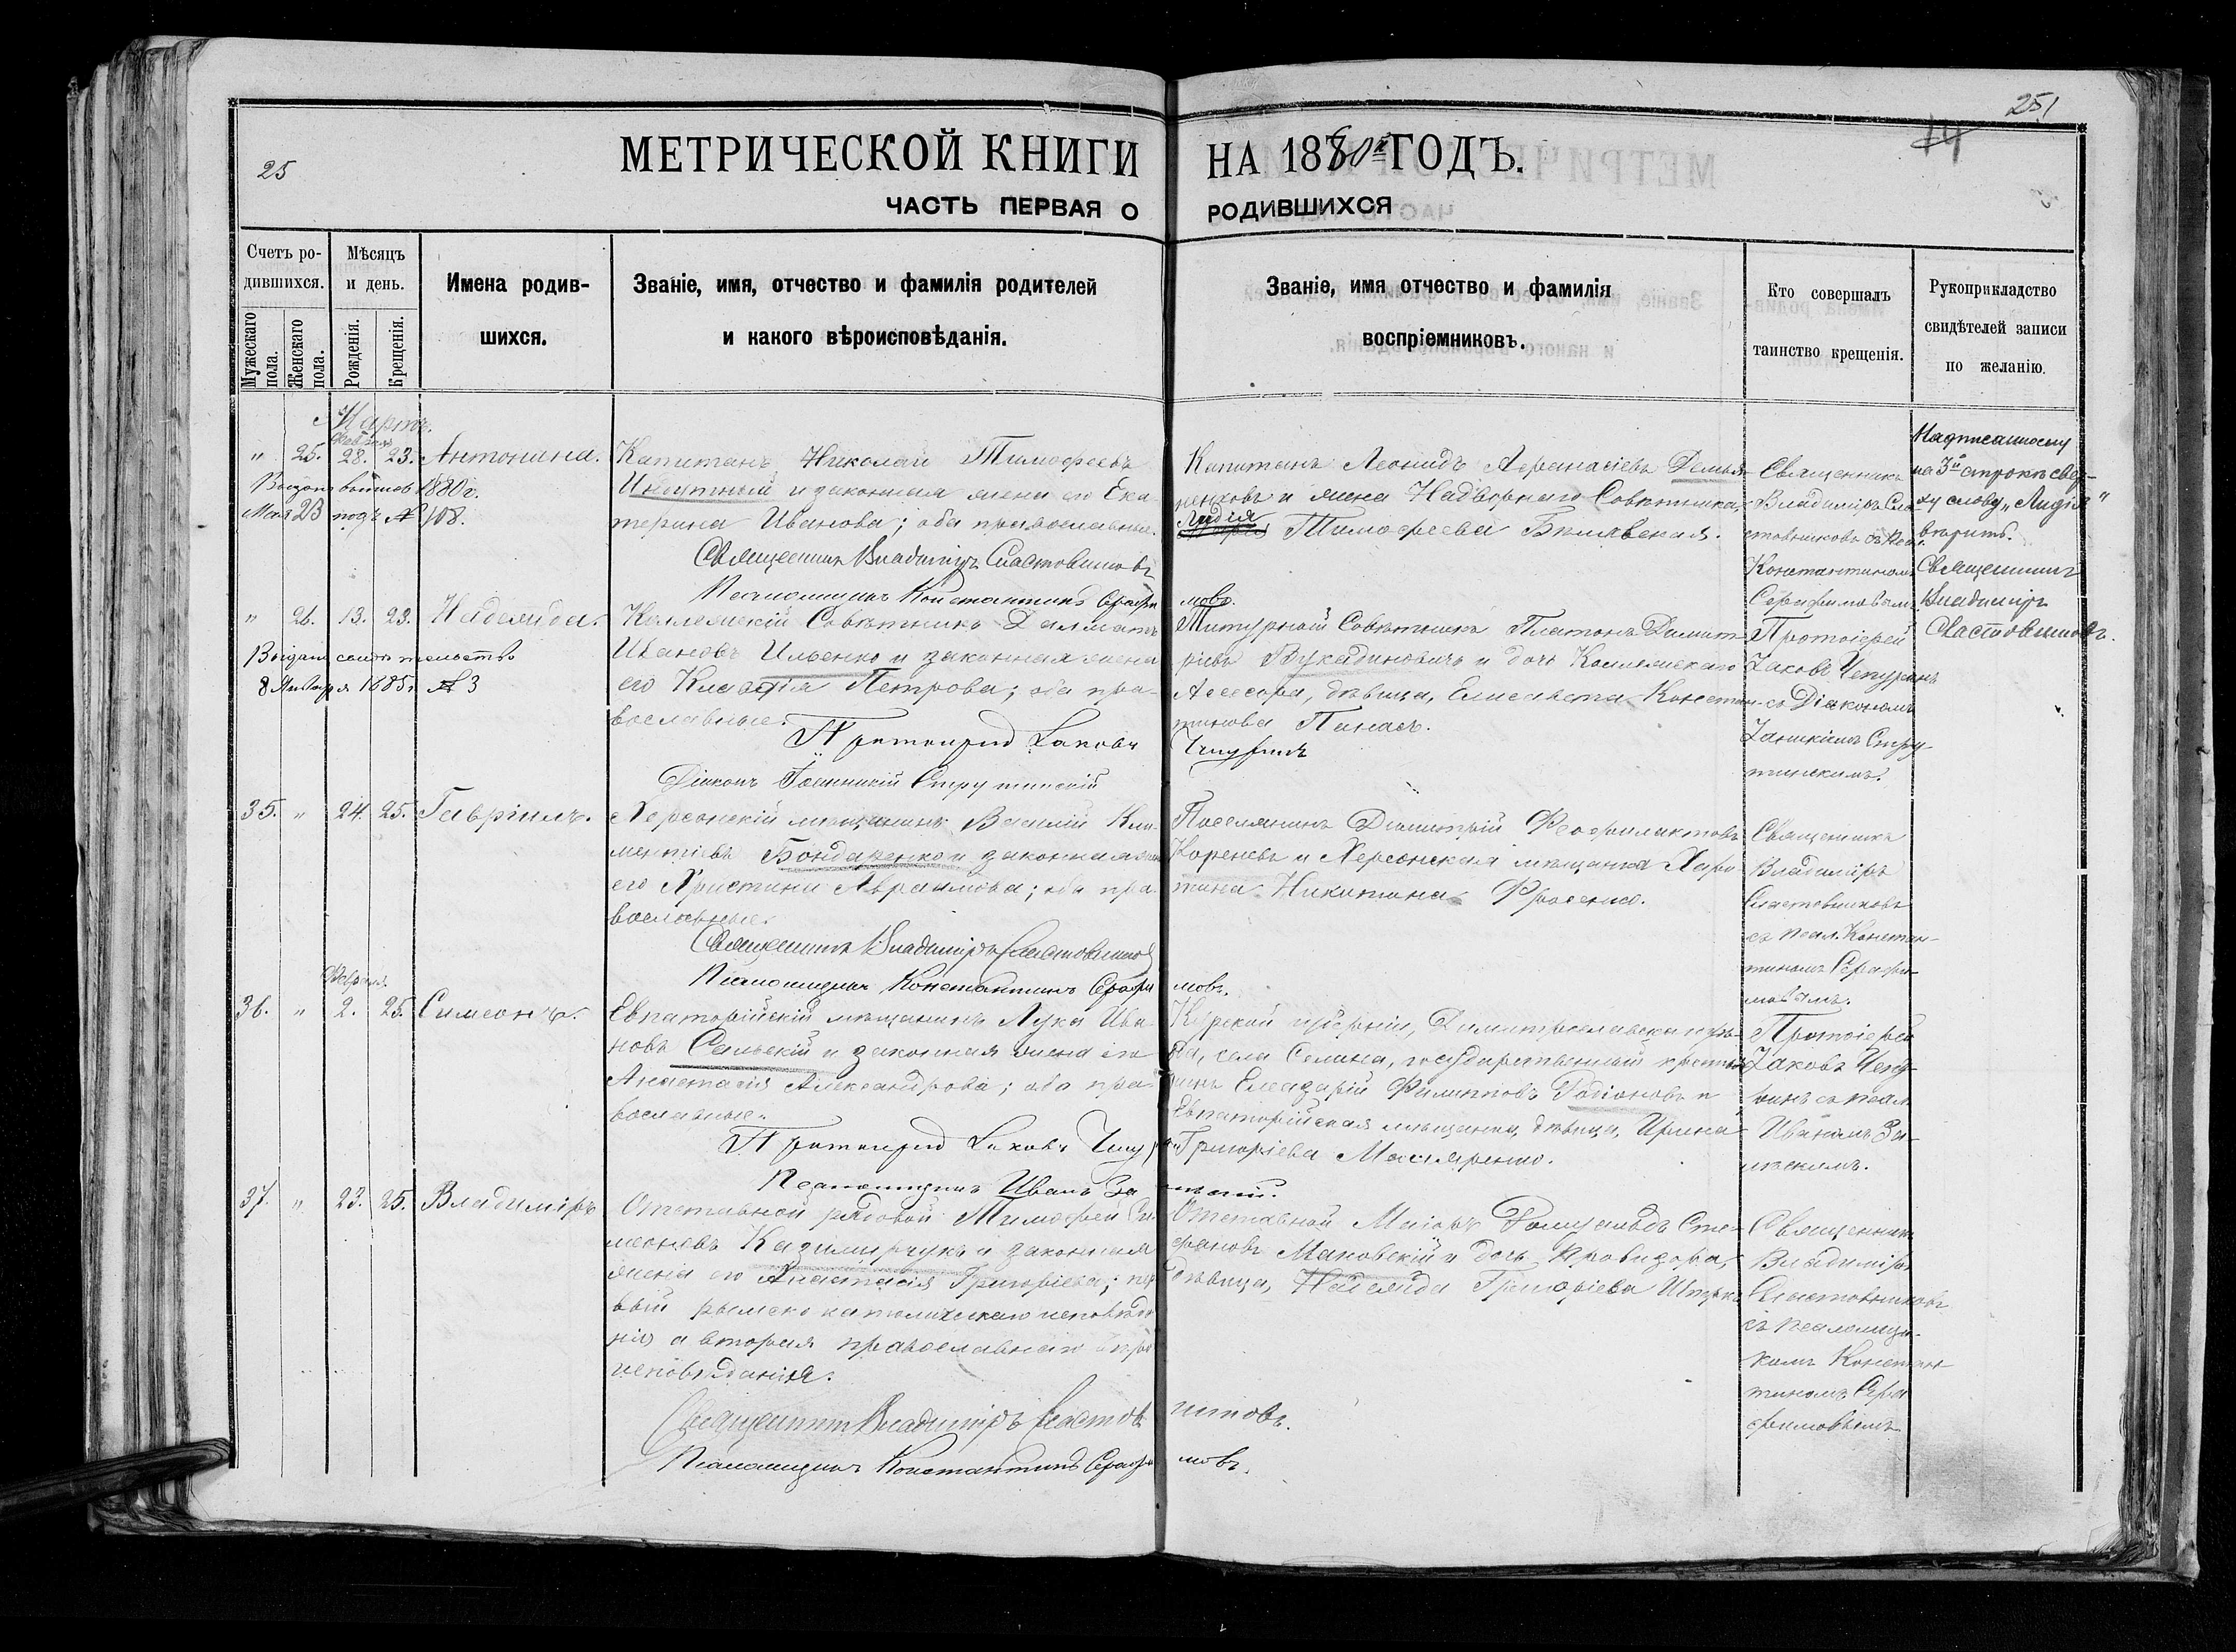 251
14
25
МЕТРИЧЕСКОЙ КНИГИ НА 1880й ГОДЪ.
ЧАСТЬ ПЕРВАЯ О РОДИВШИХСЯ
Счетъ ро-
дившихся.
Мужескаго пола.
Женскаго пола.
Мѣсяцъ
и день.
Рожденія.
Крещенія.
Имена родив-
шихся.
Званіе, имя, отчество и фамилія родителей
и какого вѣроисповѣданія.
Званіе, имя отчество и фамилія
воспріемниковъ.
Кто совершалъ
таинство крещенія.
Рукоприкладство
свидѣтелей записи
по желанію.
Мартъ.
Февраля
" 25. 28. 23. Антонина.
1880 г.
Мая 23 подъ № 108.
Капитанъ Николай Тимофеевъ
и законная жена его Ека-
терина Ивановна; оба православные.
Священникъ Владиміръ Сластовниковъ
Псаломщикъ Константинъ Серафи
мовъ.
Капитанъ Леонидъ Афанасіевъ Демья-
ненковъ и жена Надворнаго Совѣтника,
Лидія
Тимофеева
Священникъ
Владиміръ Сла-
стовниковъ съ псал.
Константиномъ
Серафимовымъ
Надписанному
на 3й строкѣ свер-
ху слову „Лидія"
вѣрить.
Священникъ
Владиміръ
Сластовниковъ.
" 26. 13. 23. Надежда.
Выдано свидѣтельство
8 Января 1885 г. № 3
Коллежскій Совѣтникъ Далматъ
Ивановъ Ильенко и законная жена
его Клавдія Петрова; оба пра-
вославные.
Протоіерей Іаковъ
Чепуринъ
Діаконъ Іоанникій Струтинскій
Титулярный Совѣтникъ Платонъ Димит-
ріевъ Вукадиновичъ и дочь Коллежскаго
Асессора, дѣвица, Елисавета Констан-
тинова Панасъ.
Протоіерей
Іаковъ Чепуринъ
съ Діакономъ
Іаникіемъ Стру-
тинскимъ.
35. " 24. 25. Гавріилъ.
Херсонскій мѣщанинъ Василій Кли-
ментіевъ Бондаренко и законная жена
его Христина Авраамова; оба пра-
вославные.
Священникъ Владиміръ Сластовниковъ
Псаломщикъ Константинъ Серафи
мовъ.
Поселянинъ Димитрій Феофилактовъ
Кореневъ и Херсонская мѣщанка Хари-
тина Никитина
Священникъ
Владиміръ
Сластовниковъ
съ псал. Констан-
тиномъ Серафи-
мовымъ.
Февраля.
36. " 2. 25. Симеонъ.
Евпаторійскій мѣщанинъ Лука Ива-
новъ Сальскій и законная жена его
Анастасія Александрова; оба пра-
вославные.
Протоіерей Іаковъ Чепу
Псаломщикъ Иванъ За
Курской губерніи, Димитріевскаго уѣз-
да, села Селина, государственный крестья-
нинъ Елеазарій Филипповъ Родіоновъ и
Евпаторійская мѣщанка, дѣвица, Ирина
Григоріева
Протоіерей
Іаковъ Чепу-
ринъ съ псал.
Иваномъ За-
37. " 23. 25. Владиміръ
Отставной рядовой Тимофей Си-
меоновъ Казимирчукъ и законная
жена его Анастасія Григоріева; пер-
вый римско католическаго исповѣда-
нія а вторая православнаго
исповѣданія.
Священникъ Владиміръ Сластов
никовъ.
Псаломщикъ Константинъ Серафи
мовъ.
Отставной Маіоръ Ромуальдъ Сте-
фановъ Маковскій и дочь провизора,
дѣвица, Надежда Григоріева
Священникъ
Владиміръ
Сластовниковъ
съ псаломщи-
комъ Констан-
тиномъ Сера
фимовымъ.